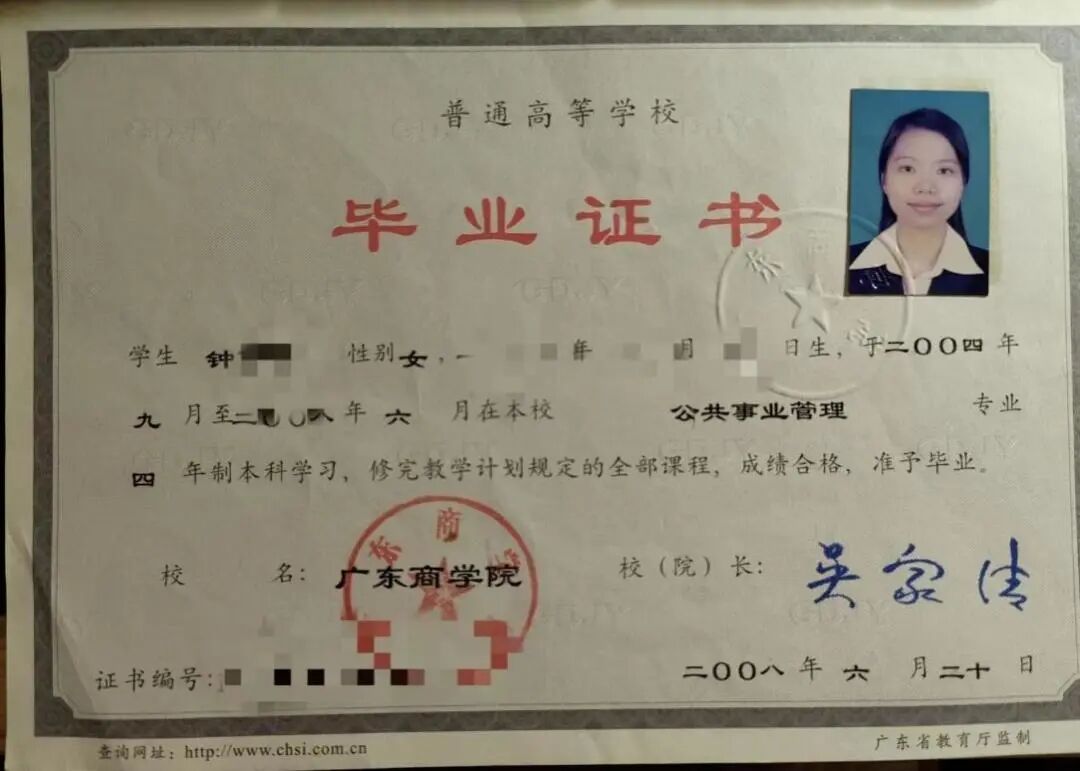 普通高等学校
毕业证书
学生 钟 性别 女， 年 月 日生，于二〇〇四年
九月至二〇〇八年六月在本校 公共事业管理 专业
四年制本科学习，修完教学计划规定的全部课程，成绩合格，准予毕业。
校 名：广东商学院 校（院）长：吴家清
证书编号： 二〇〇八年六月二十日
查询网址：http://www.chsi.com.cn 广东省教育厅监制